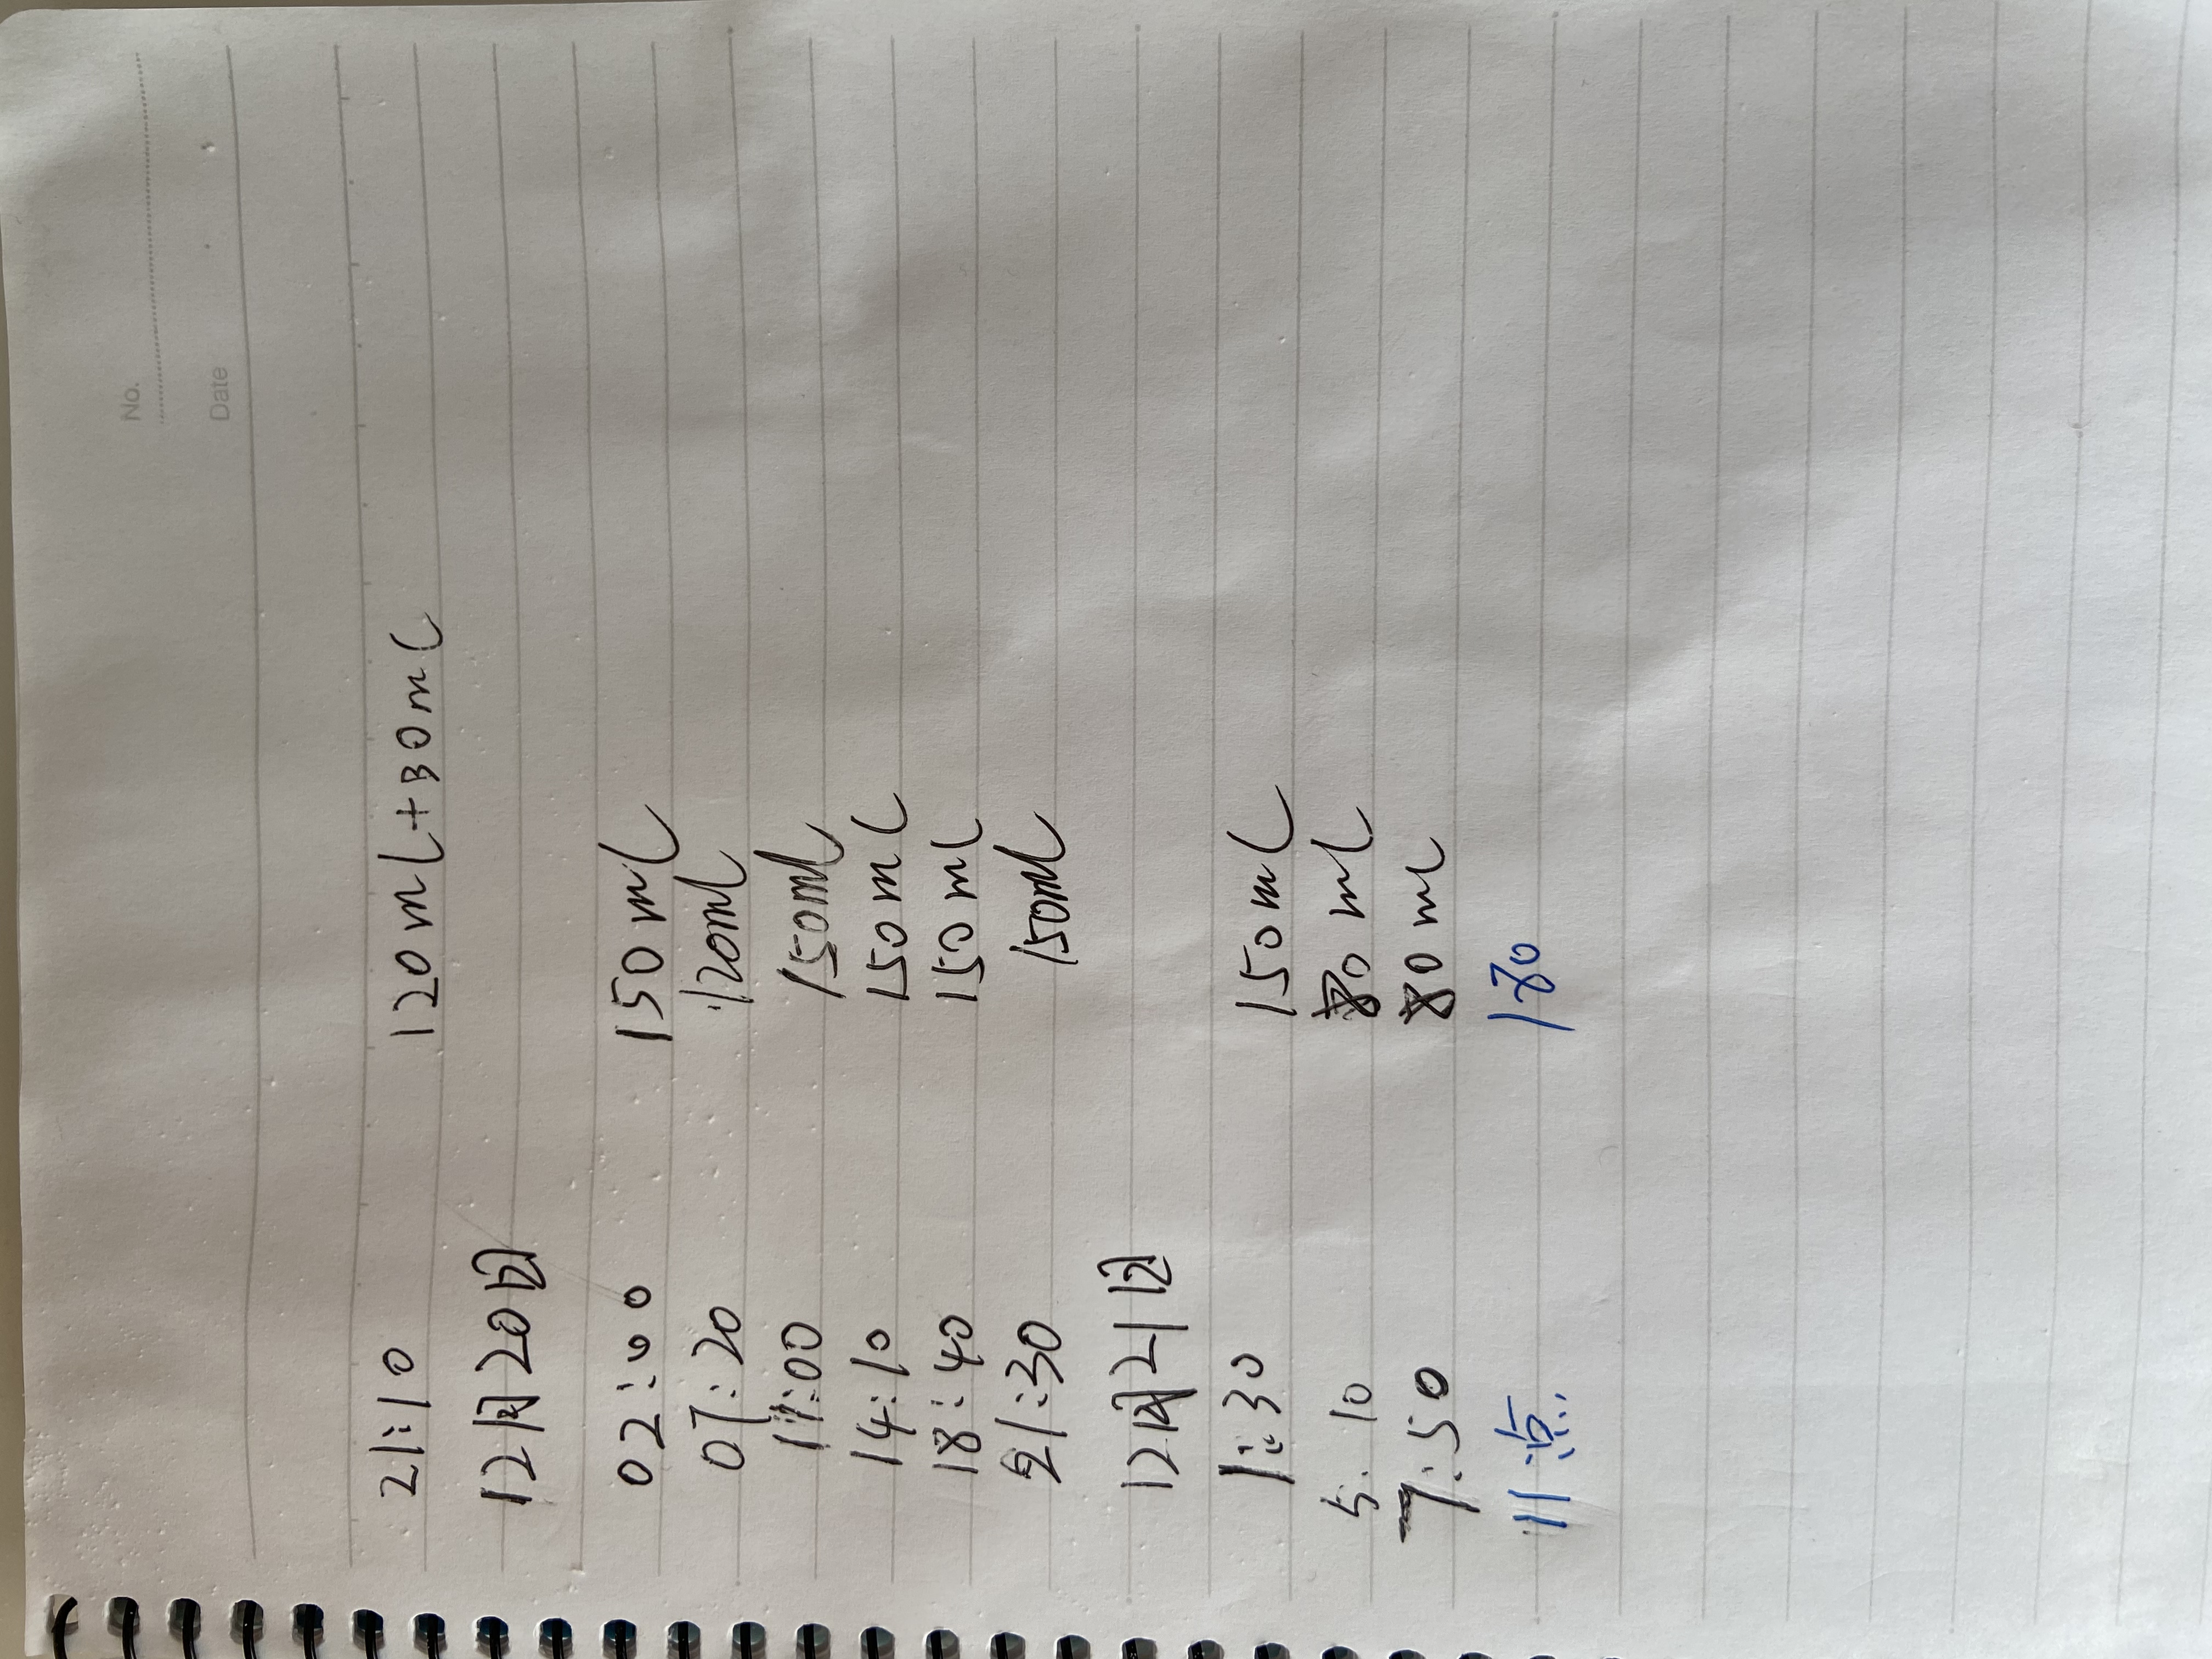 No.
Date
21:10 120ml+30ml
12月20日
02:00 150ml
07:20 120ml
11:00 150ml
14:10 150ml
18:40 150ml
21:30 150ml
12月21日
1:30 150ml
5:10 80ml
7:50 80ml
11点 180